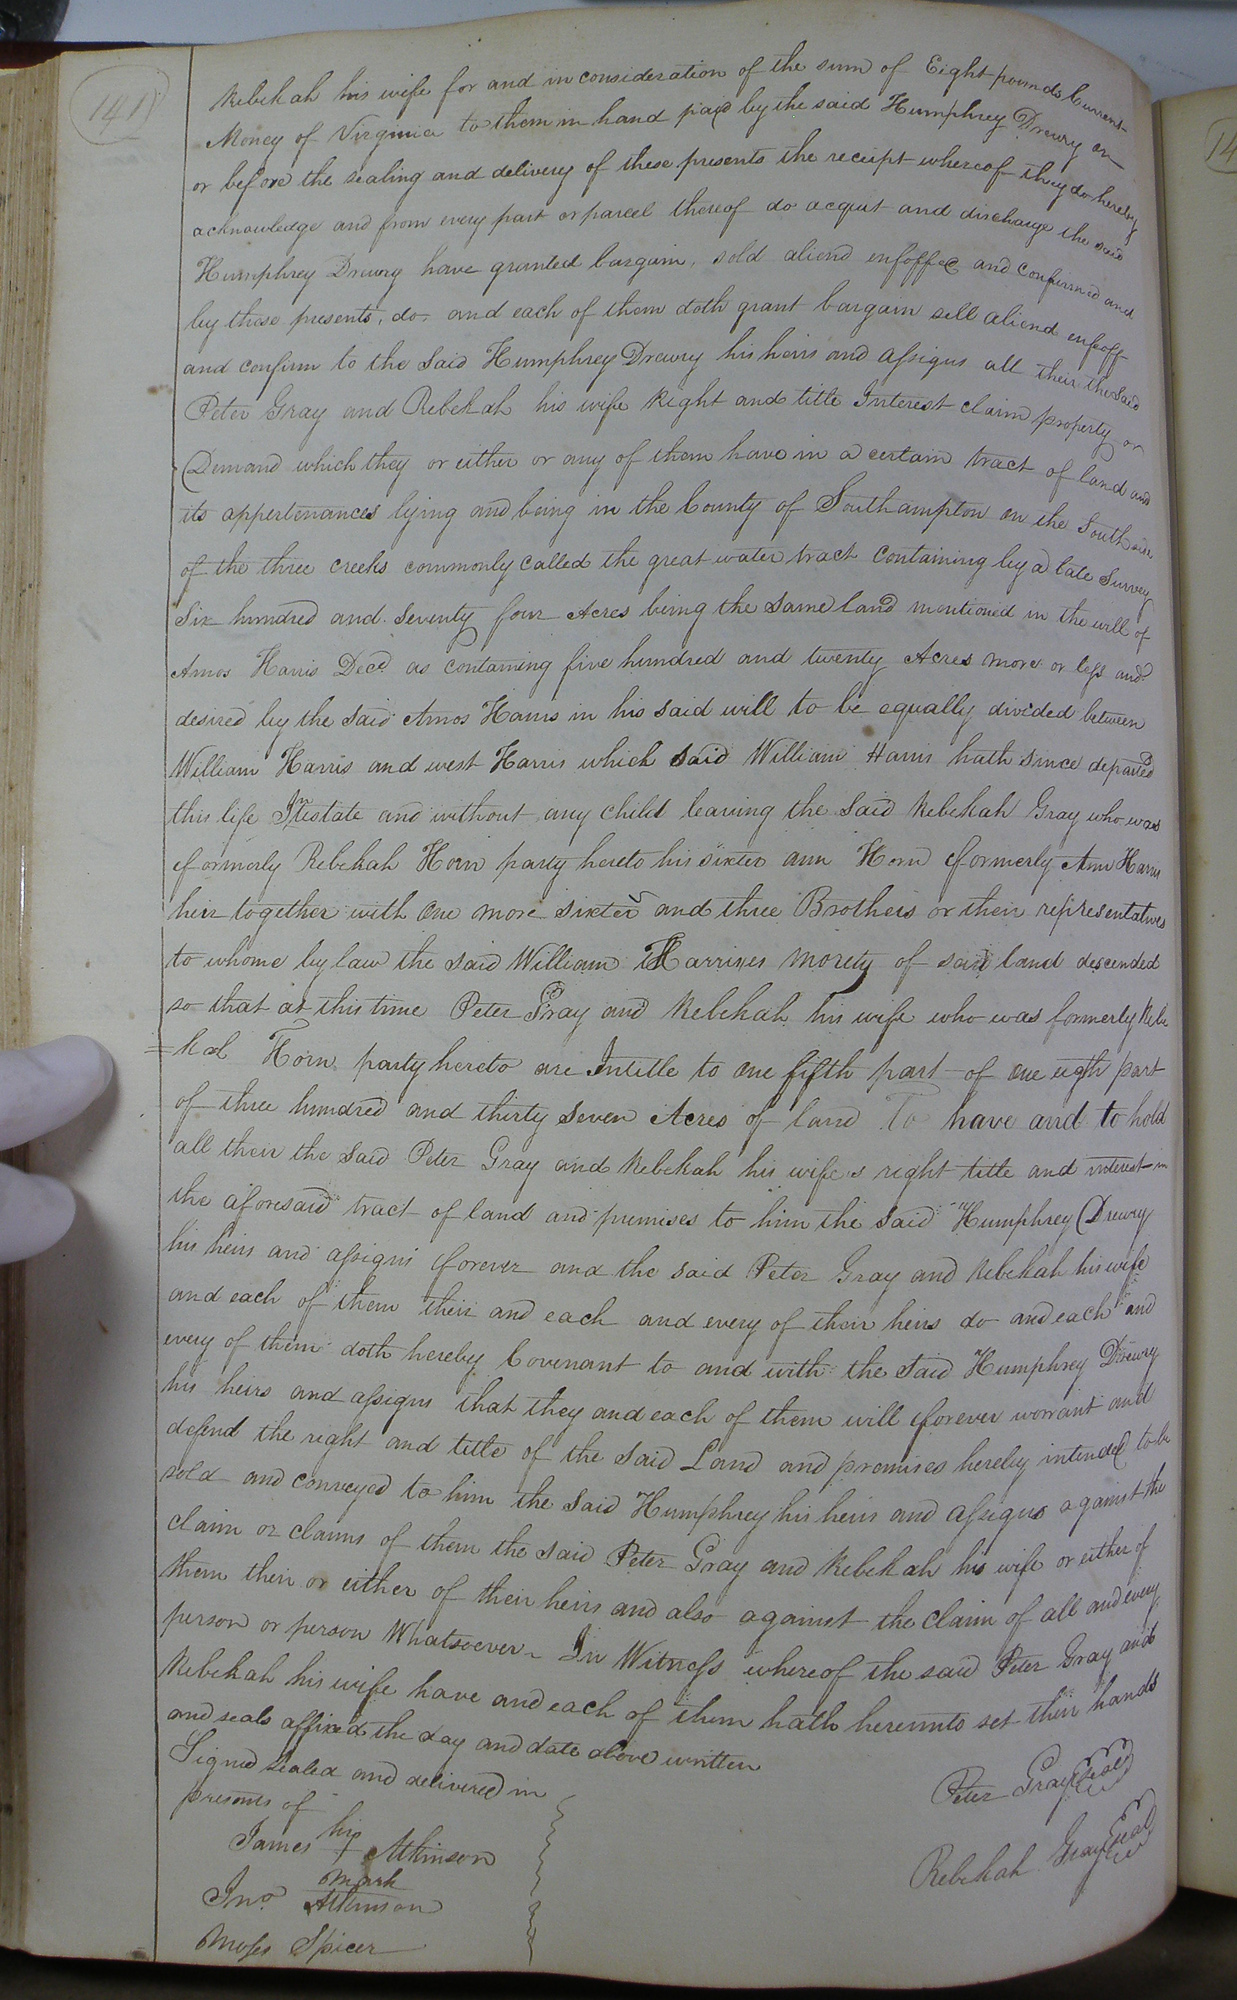 141
Rebekah his wife for and in consideration of the sum of Eight pounds Current
Money of Virginia to them in hand paid by the said Humphrey Drewry on
or before the sealing and delivery of these presents the receipt whereof they do hereby
acknowledge and from every part or parcel thereof do acquit and discharge the said
Humphrey Drewry have granted bargain, sold aliend enfoffee and confirmed and
by these presents, do, and each of them doth grant bargain sell aliend enfeoff
and confirm to the said Humphrey Drewry his heirs and assigns all their the said
Peter Gray and Rebekah his wife Right and title Interest claim property or
Demand which they or either or any of them have in a certain tract of land and
its appertenances lying and being in the County of Southampton on the South side
of the three creeks commonly called the great water tract containing by a late Survey
Six hundred and Seventy four Acres being the same land mentioned in the will of
Amos Harris Decd as containing five hundred and twenty Acres more or less and
desired by the said Amos Harris in his said will to be equally divided between
William Harris and west Harris which said William Harris hath since departed
this life Itestate and without any child leaving the said Rebekah Gray who was
formerly Rebekah Horn party hereto his sister ann Horn formerly Ann Harris
heir together with one more sister and three Brothers or their representatives
to whome by law the said William Harrises morety of said land descended
so that at this time Peter Gray and Rebekah his wife who was formerly Rebe
=kah Horn party hereto are Intitle to one fifth part of one eigth part
of three hundred and thirty seven Acres of land To have and to hold
all their the said Peter Gray and Rebekah his wifes right title and interest in
the aforesaid tract of land and premises to him the said Humphrey Drewry
his heirs and assigns forever and the said Peter Gray and Rebekah his wife
and each of them their and each and every of their heirs do and each and
every of them doth hereby Covenant to and with the said Humphrey Drewry
his heirs and assigns that they and each of them will forever warrant and
defend the right and title of the said Land and premises hereby intended to be
sold and conveyed to him the said Humphrey his heirs and assigns against the
claim or claims of them the said Peter Gray and Rebekah his wife or either of
them their or either of their heirs and also against the claim of all and every
person or person Whatsoever - In Witness whereof the said Peter Gray and
Rebekah his wife have and each of them hath hereunto set their hands
and seals affixed the day and date above written
Signed sealed and delivered in
presents of
Peter Gray Seal
James his + mark Atkinson
Rebekah Gray Seal
Jno. Atkinson
Moses Spicer